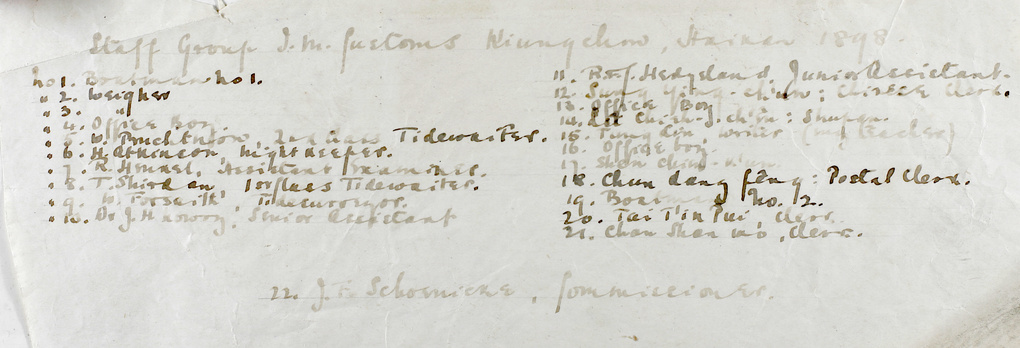 Staff Group I. M. Customs Kiungchow, Hainan 1898.
No 1. Boatman No 1.
" 2. Weigher
" 3. "
" 4. Office Boy.
" 5. W. 2nd Class Tidewaiter.
" 6. H. Atkinson, Nightkeeper.
" 7. R. Assistant Examiner.
" 8. T. 1st Class Tidewaiter.
" 9. W. Forsaith, Tidesurveyor.
" 10. Dr J. H. Lowry, Senior Assistant
11. R. F. C. Hedgeland, Junior Assistant.
12. Sung Ying-chun: Chinese Clerk.
13. Office Boy
14. Chieh-J. chin: Shupan.
15. Tung Lin writer (my teacher)
16. Office boy.
17. Shen ching
18. Chun dang fêng: Postal Clerk.
19. Boatman No. 2.
20. Tai T'in Pui, Clerk.
21. Chan Shan wo, Clerk.
22. J. F. Schoenicke, Commissioner.